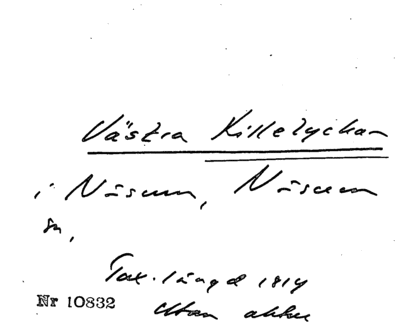 Västra Killetyckan
i Näsum, Näsum
sn,
Tax. längd 1814
Nr 10832 Utan